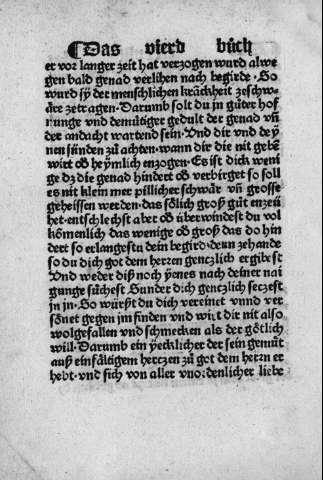 Das vierd bůch
er vor langer zeit hat verzogen wurd alwe
gen bald genad verlihen nach begirde. So
wurd sy der menschlichen kräckheit zeschwä
re zetragen. Darumb solt du jn gůter hof
nunge vnd demůtiger gedult der genad vn̄
der andacht wartend sein. Vnd dir vnd deynen
sünden zů achten. wann dir die nit gebē
wirt oď heymlich enzogen. Es ist dick weni
ge dz die genad hindert oď verbirget so soll
es nit klein mer pillicher schwär vn̄ grosse
geheissen werden. das sölich groß gůt
het. entschlechst aber oď überwindest du vol
kōmenlich das wenige oď groß das do hin
dert so erlangestu dein begird. denn zehande
so du dich got dem herzen genczlich ergibest
Vnd weder diß noch yenes nach deiner nai
gunge sůchest Sunder dich genczlich seczest
in jn. So würst du dich vereinet vnnd ver
sönet gegen jm finden vnd wirt dir nit also
wolgefallen vnd schmecken als der götlich
will. Darumb ein yecklicher der sein gemůt
auß einfältigem herczen zů got dem herrn er
hebt. vnd sich von aller vnordenlicher liebe